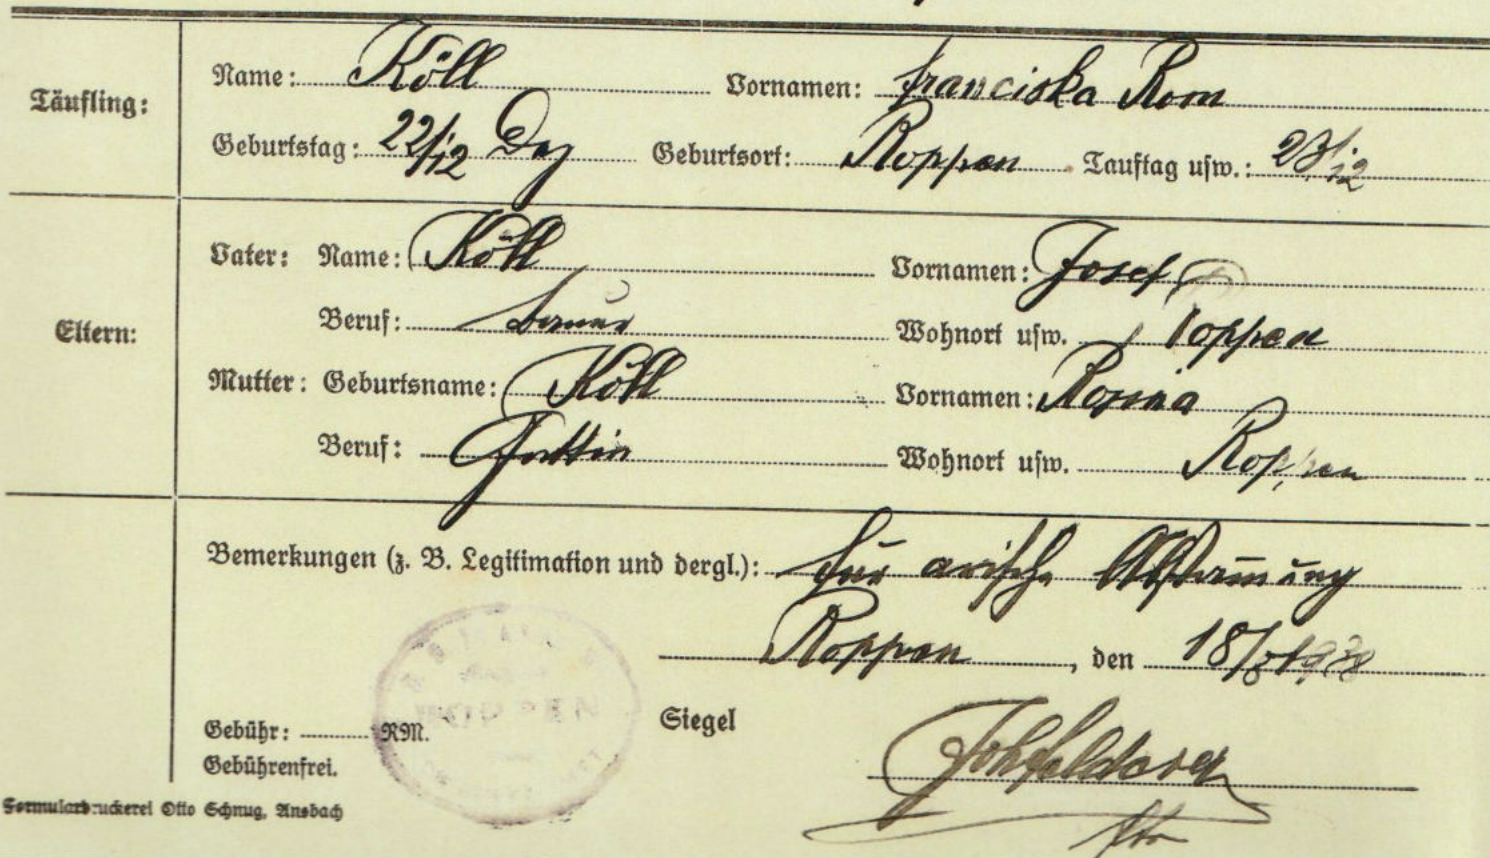 Täufling: Name: Köll Vornamen: Franciska Rom
Geburtstag: 22/12 Dez Geburtsort: Roppen Tauftag usw.: 23/12
Eltern: Vater: Name: Köll Vornamen: Josef
Beruf: bauer Wohnort usw. Roppen
Mutter: Geburtsname: Köll Vornamen: Rosina
Beruf: Gattin Wohnort usw. Roppen
Bemerkungen (z. B. Legitimation und dergl.): für arische Abstammung
Roppen, den 18/ 1938
Siegel
Gebühr: RM.
Gebührenfrei.
ROPPEN
Formulardruckerei Otto Schnug, Ansbach